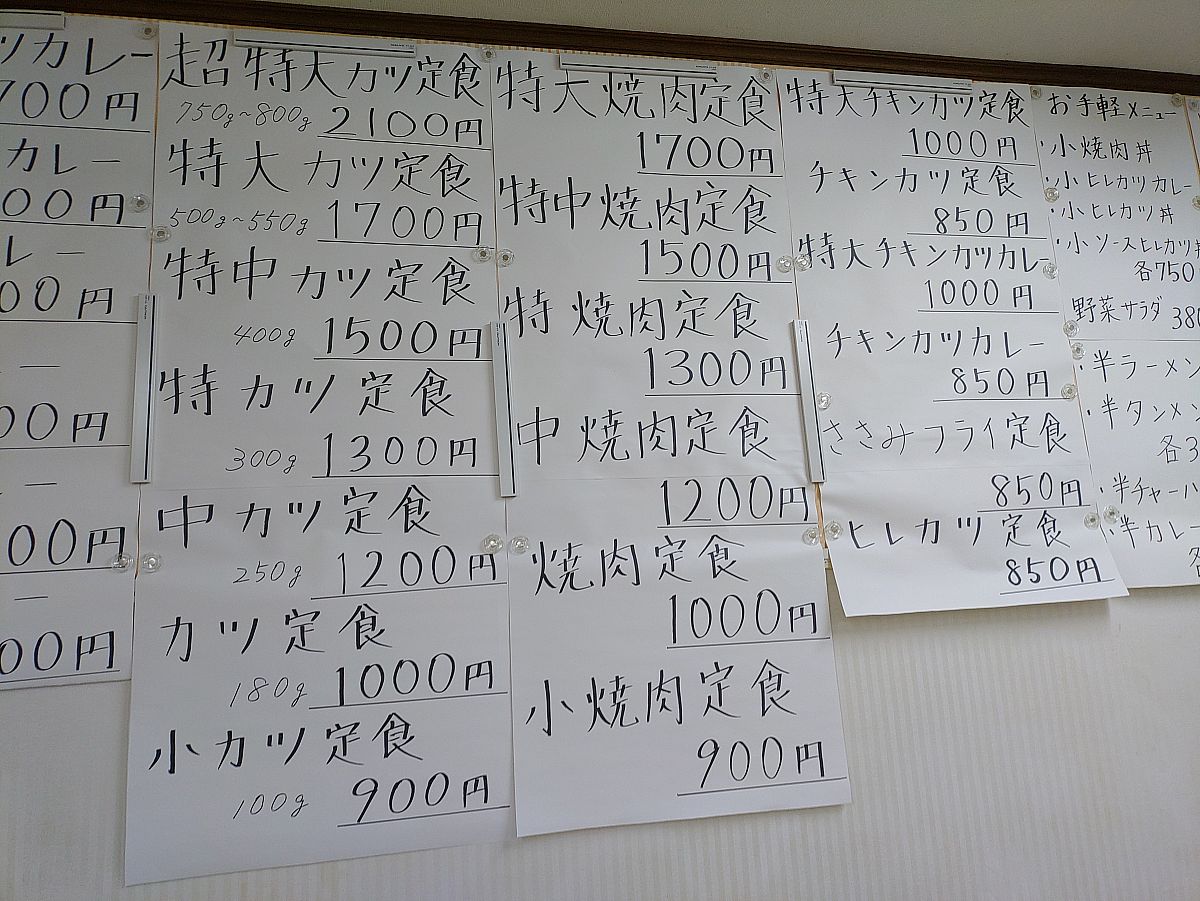 ツカレー
700円
カレー
00円
レー
00円
ー
00円
ー
00円
ー
00円
超特大カツ定食
750g~800g 2100円
特大カツ定食
500g~550g 1700円
特中カツ定食
400g 1500円
特カツ定食
300g 1300円
中カツ定食
250g 1200円
カツ定食
180g 1000円
小カツ定食
100g 900円
特大焼肉定食
1700円
特中焼肉定食
1500円
特焼肉定食
1300円
中焼肉定食
1200円
焼肉定食
1000円
小焼肉定食
900円
特大チキンカツ定食
1000円
チキンカツ定食
850円
特大チキンカツカレー
1000円
チキンカツカレー
850円
ささみフライ定食
850円
ヒレカツ定食
850円
お手軽メニュー
・小焼肉丼
・小ヒレカツカレー
・小ヒレカツ丼
・小ソースヒレカツ丼
各750
野菜サラダ 380
・半ラーメン
・半タンメン
各3
・半チャーハ
・半カレー
各